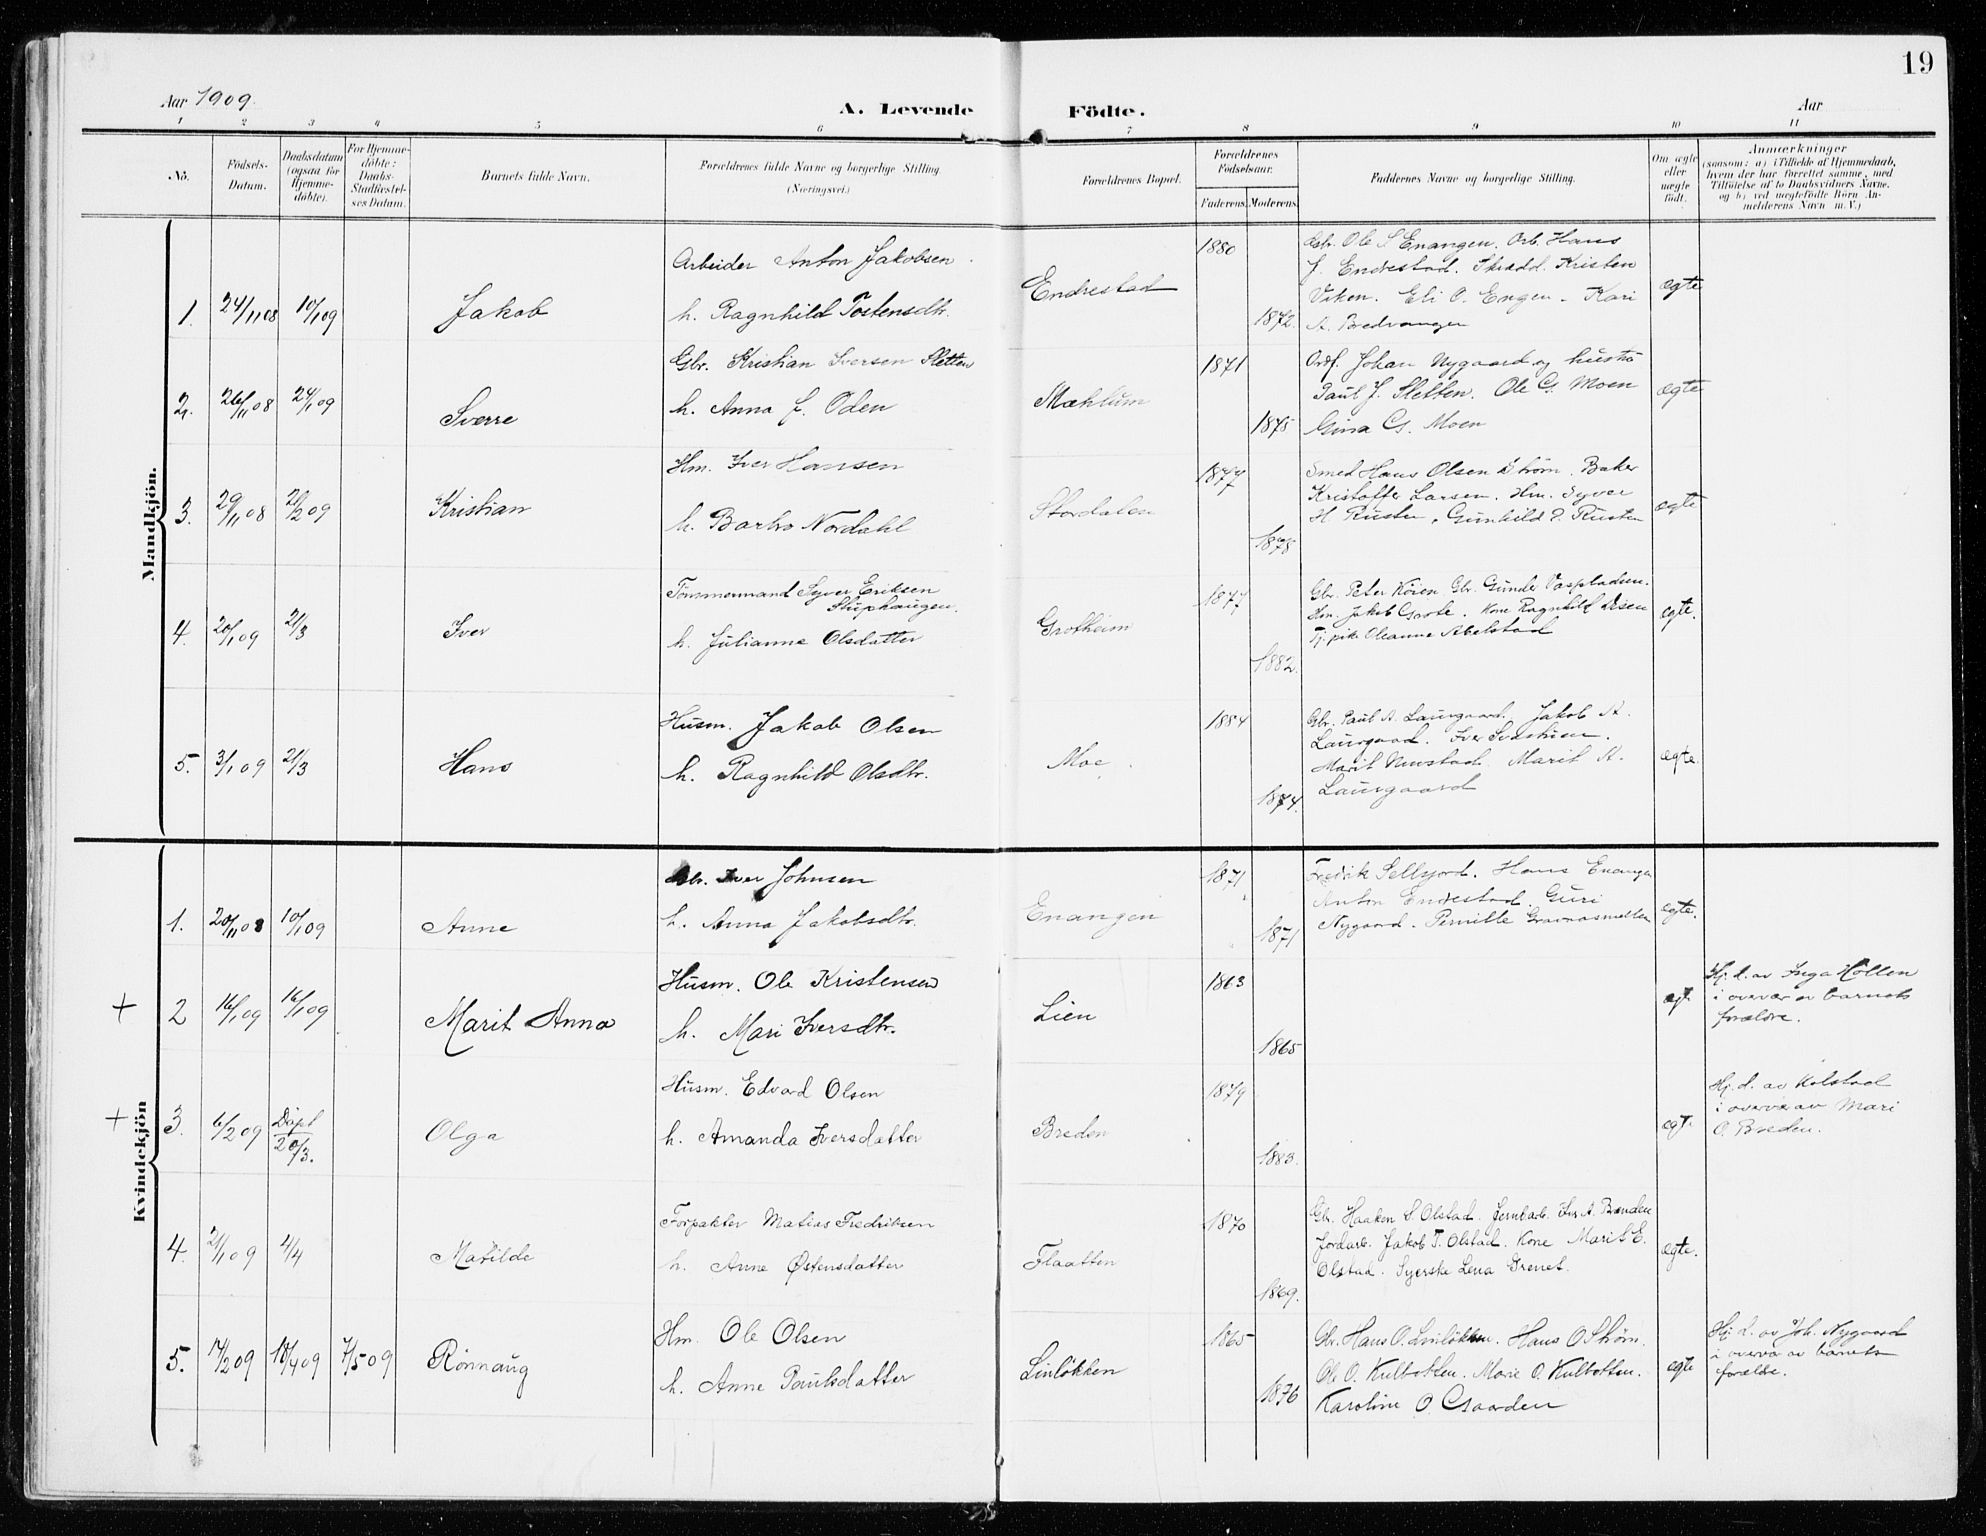 19
Aar 1909.
A. Levende Födte.
Aar
1 2 3 4 5 6 7 8 9 10 11
No.
Födsels-Datum.
Daabsdatum (ogsaa for Hjemme-döbte).
For Hjemme-döbte: Daabs-Stadfæstel-ses Datum.
Barnets fulde Navn.
Forældrenes fulde Navne og borgerlige Stilling. (Næringsvei.)
Forældrenes Bopæl.
Forældrenes Födselsaar.
Faderens. Moderens.
Faddernes Navne og borgerlige Stilling.
Om ægte eller uægte født.
Anmærkninger
(saasom: a) i Tilfælde af Hjemmedaab, hvem der har forrettet samme, med Tilföielse af to Daabsvidners Navne, og b) ved uægtefödte Börn An-melderens Navn m. V.)
Mandkjön.
Arbeider Anton Jakobsen
1880
Gbr. Ole S Enangen. Arb. Hans
J. Endrestad. Skrædd. Kristen
1. 24/11 08 10/1 09 Jakob
h. Ragnhild Tostensdtr.
Endrestad
1872.
Viken. Eli O. Engen. Kari
A. Bredvangen
ægte
Gbr. Kristian Iversen Sletten
1871
Ordf. Johan Nygaard og hustru
2. 26/11 08 24/1 09 Sverre
h. Anna J. Oden
Mæhlum
1875
Paul J. Sletten. Ole G. Moen
Gina G. Moen
ægte
Hm. Iver Hansen
1877
Smed Hans Olsen Strøm. Baker
3. 29/11 08 21/2 09 Kristian
h. Barbro Nordahl
Stordalen
1878
Kristoffer Larsen. Hm. Syver
H. Rusten, Gunhild P. Rusten
ægte
Tömmermand Syver Eriksen
Stuphaugen.
1877
Gbr. Peter Kören. Gbr. Gunder
4. 20/1 09 21/3 Iver
h. Julianne Olsdatter
Grotheim
1882.
Hm. Jakob Kone Ragnhild
Tj.pike Oleanne Abelstad
ægte.
Husm. Jakob Olsen
1884
Gbr. Paul A. Laurgaard. Jakob A.
5. 3/1 09 21/3 Hans
h. Ragnhild Olsdtr.
Moe
1874.
Laurgaard. Iver
Marit Marit A.
Laurgaard
ægte.
Kvindekjön
Gbr. Iver Johnsen
1871
Fredrik Selljord. Hans Enangen
1. 20/11 08 10/1 09 Anne
h. Anna Jakobsdtr.
Enangen
1871
Anton Endrestad. Guri
Nygaard. Pernille
ægte.
Husm. Ole Kristensen
1863
+ 2 16/1 09 16/1 09 Marit Anna
h. Mari Iversdtr.
Lien
1865
ægt.
Hj. d. av Inga Höllen
i overvær av barnets
forældre.
Husm. Edvard Olsen
1879
+ 3. 6/2 09 Döpt 20/3. Olga
h. Amanda Iversdatter
Breden
1883.
ægt.
Hj. d. av Kolstad
i overvær av Mari
O. Breden.
Forpakter Matias Fredriksen
1870
Gbr. Haaken S. Olstad. Jernbarb. Iver A. Brænden
4. 21/1 09 4/4 Matilde
h. Anne Østensdatter
Flaatten
1869.
Jordarb. Jakob T. Olstad. Kone Marit E.
Olstad. Syerske Lena Grenet.
ægte.
Hm. Ole Olsen
1865
Gbr. Hans O. Linløkken. Hans O Strøm.
5. 17/2 09 18/4 09 7/5 09 Rönnaug
h. Anne Paulsdatter
Linløkken
1876
Ole O. Kulbotten. Marie O. Kulbotten.
Karoline O. Gaarden
ægte
Hj. d. av Joh. Nygaard
i overvær av barnets
forældre.